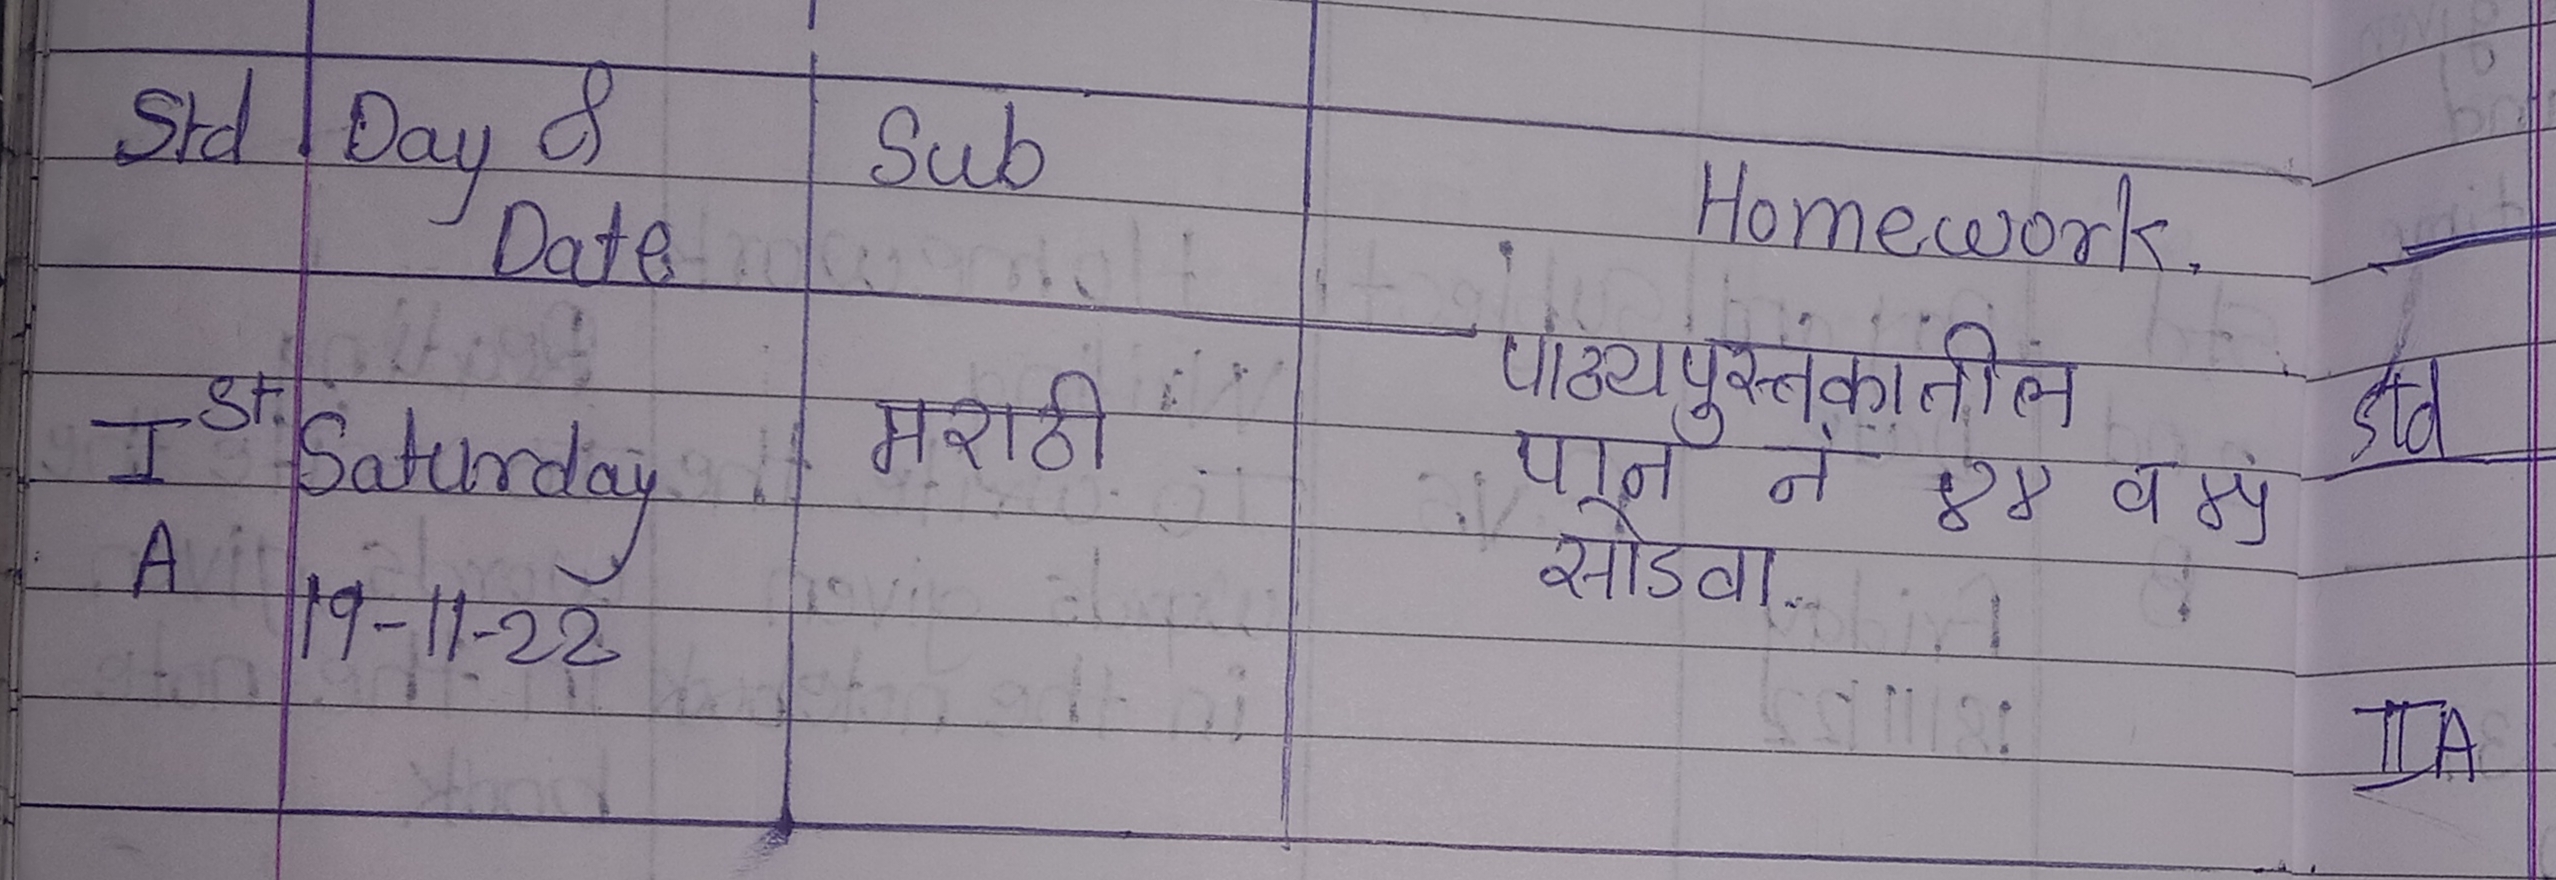 Std Day & Sub Homework.
Date
Ist Saturday मराठी पाठ्यपुस्तकातील
पान नं ४४ व ४५
A सोडवा.
19-11-22
Std
IIA